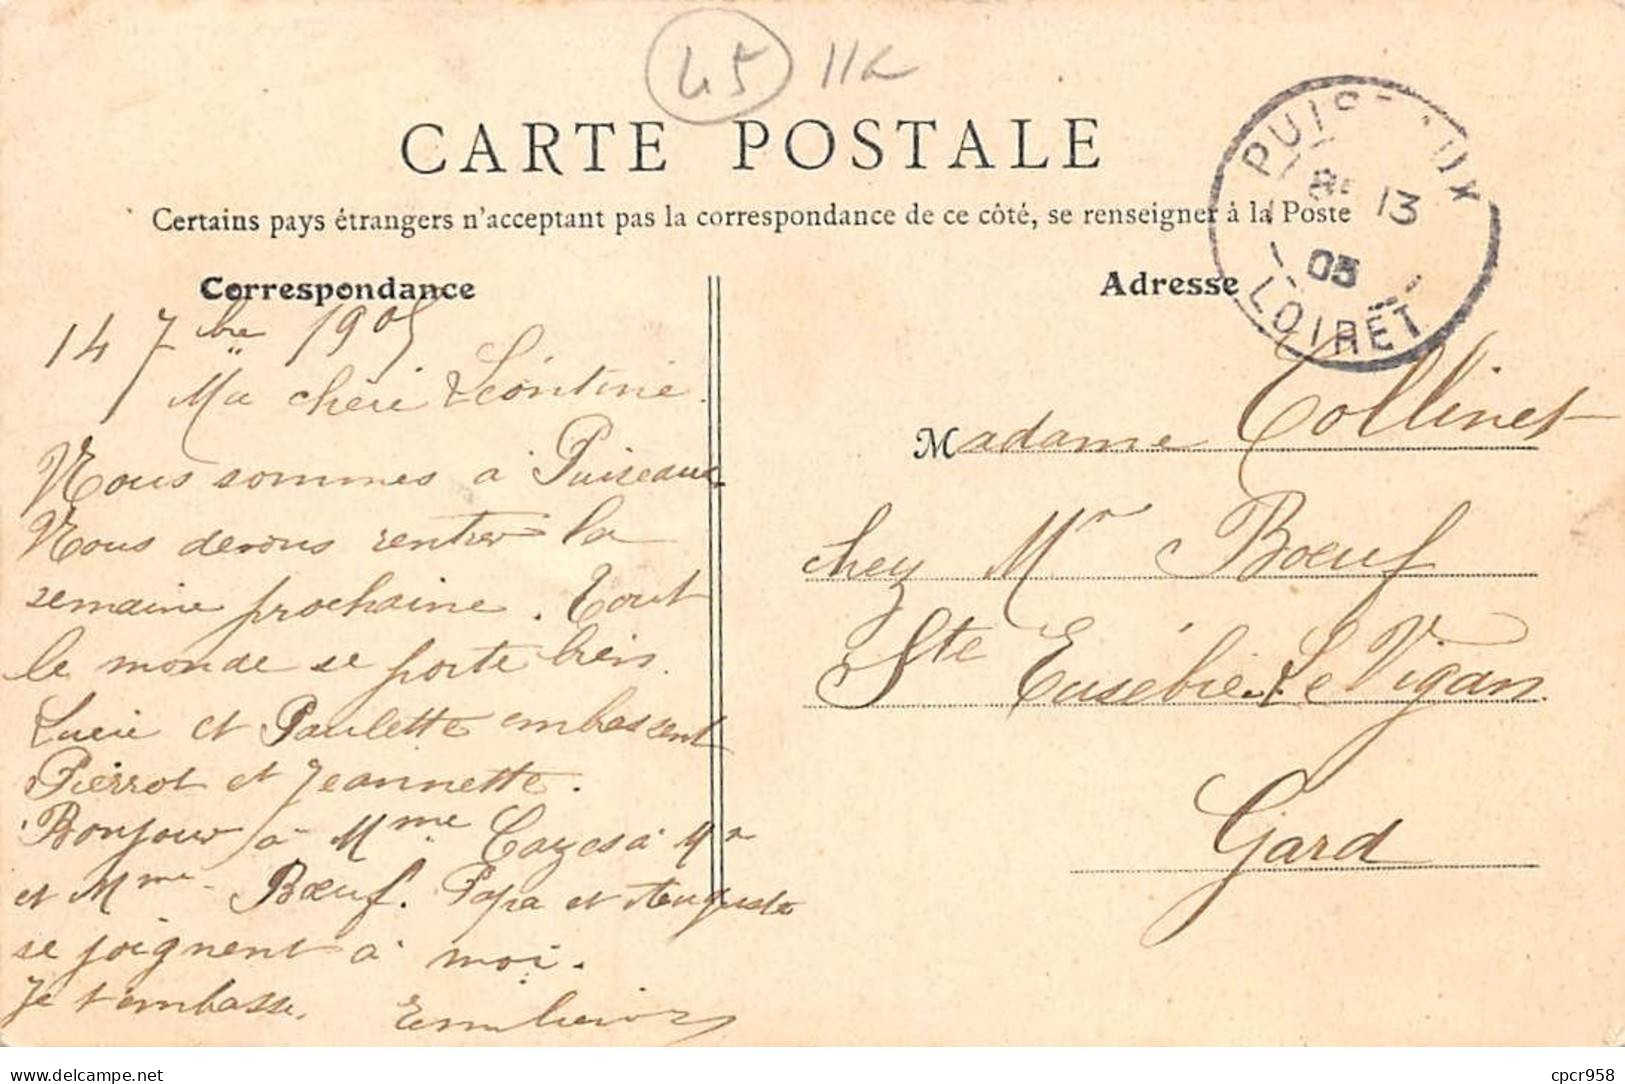 45 11c
CARTE POSTALE
Certains pays étrangers n'acceptant pas la correspondance de ce côté, se renseigner à la Poste
PUIS UX
13
05
LOIRET
Correspondance
14 7bre 1905
Ma chéri Léontine.
Nous sommes à Puiseaux.
Nous devons rentrer la
semaine prochaine. Tout
le monde se porte bien.
Lucie et Paulette embassent
Pierrot et Jeannette.
Bonjour à Mme Cazes à Mr
et Mme Bœuf. Papa et Auguste
se joignent à moi.
Je t'embasse.
Adresse
Madame Collinet
chez Mr Bœuf
Ste Eusébie. Le Vigan.
Gard
delcampe.net
cpcr958